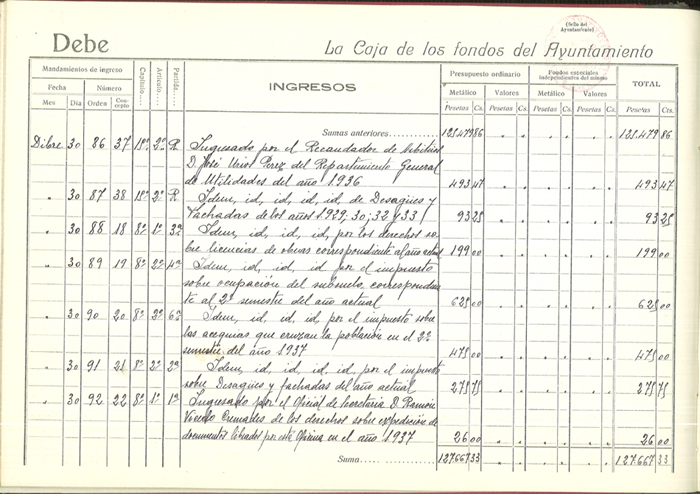 (Sello del Ayuntamiento)
Debe
La Caja de los fondos del Ayuntamiento
Mandamientos de ingreso
Fecha Número
Mes Día Orden Concepto
Capítulo Artículo Partida
INGRESOS
Presupuesto ordinario
Metálico Valores
Pesetas Cs. Pesetas Cs.
Fondos especiales independientes del mismo
Metálico Valores
Pesetas Cs. Pesetas Cs.
TOTAL
Pesetas Cs.
Sumas anteriores 125.479 86 125.479 86
Dibre. 30 86 37 18º 2º R Ingresado por el Recaudador de Arbitrios
D. José Pérez del Repartimiento General
de Utilidades del año 1936 493 47 493 47
" 30 87 38 18º 2º R Idem, id, id, id, de Desagües y
Fachadas de los años 1929, 30, 32 y 33 93 25 93 25
" 30 88 18 8º 1º 3ª Idem, id, id, id, por los derechos so-
bre licencias de obras correspondiente al año actual 199 00 199 00
" 30 89 19 8º 2º 4ª Idem, id, id, id por el impuesto
sobre ocupación del subsuelo, correspondien-
te al 2º semestre del año actual 625 00 625 00
" 30 90 20 8º 2º 6ª Idem, id, id, id, por el impuesto sobre
las acequias que cruzan la población en el 2º
semestre del año 1937 475 00 475 00
" 30 91 21 8º 2º 2ª Idem, id, id, id, id, por el impuesto
sobre Desagües y fachadas del año actual 275 75 275 75
" 30 92 22 8º 1º 1ª Ingresado por el Oficial de Secretaria D. Ramón
Vicedo Cremades de los derechos sobre expedición de
documentos librados por esta Oficina en el año 1937 26 00 26 00
Suma 127.667 33 127.667 33